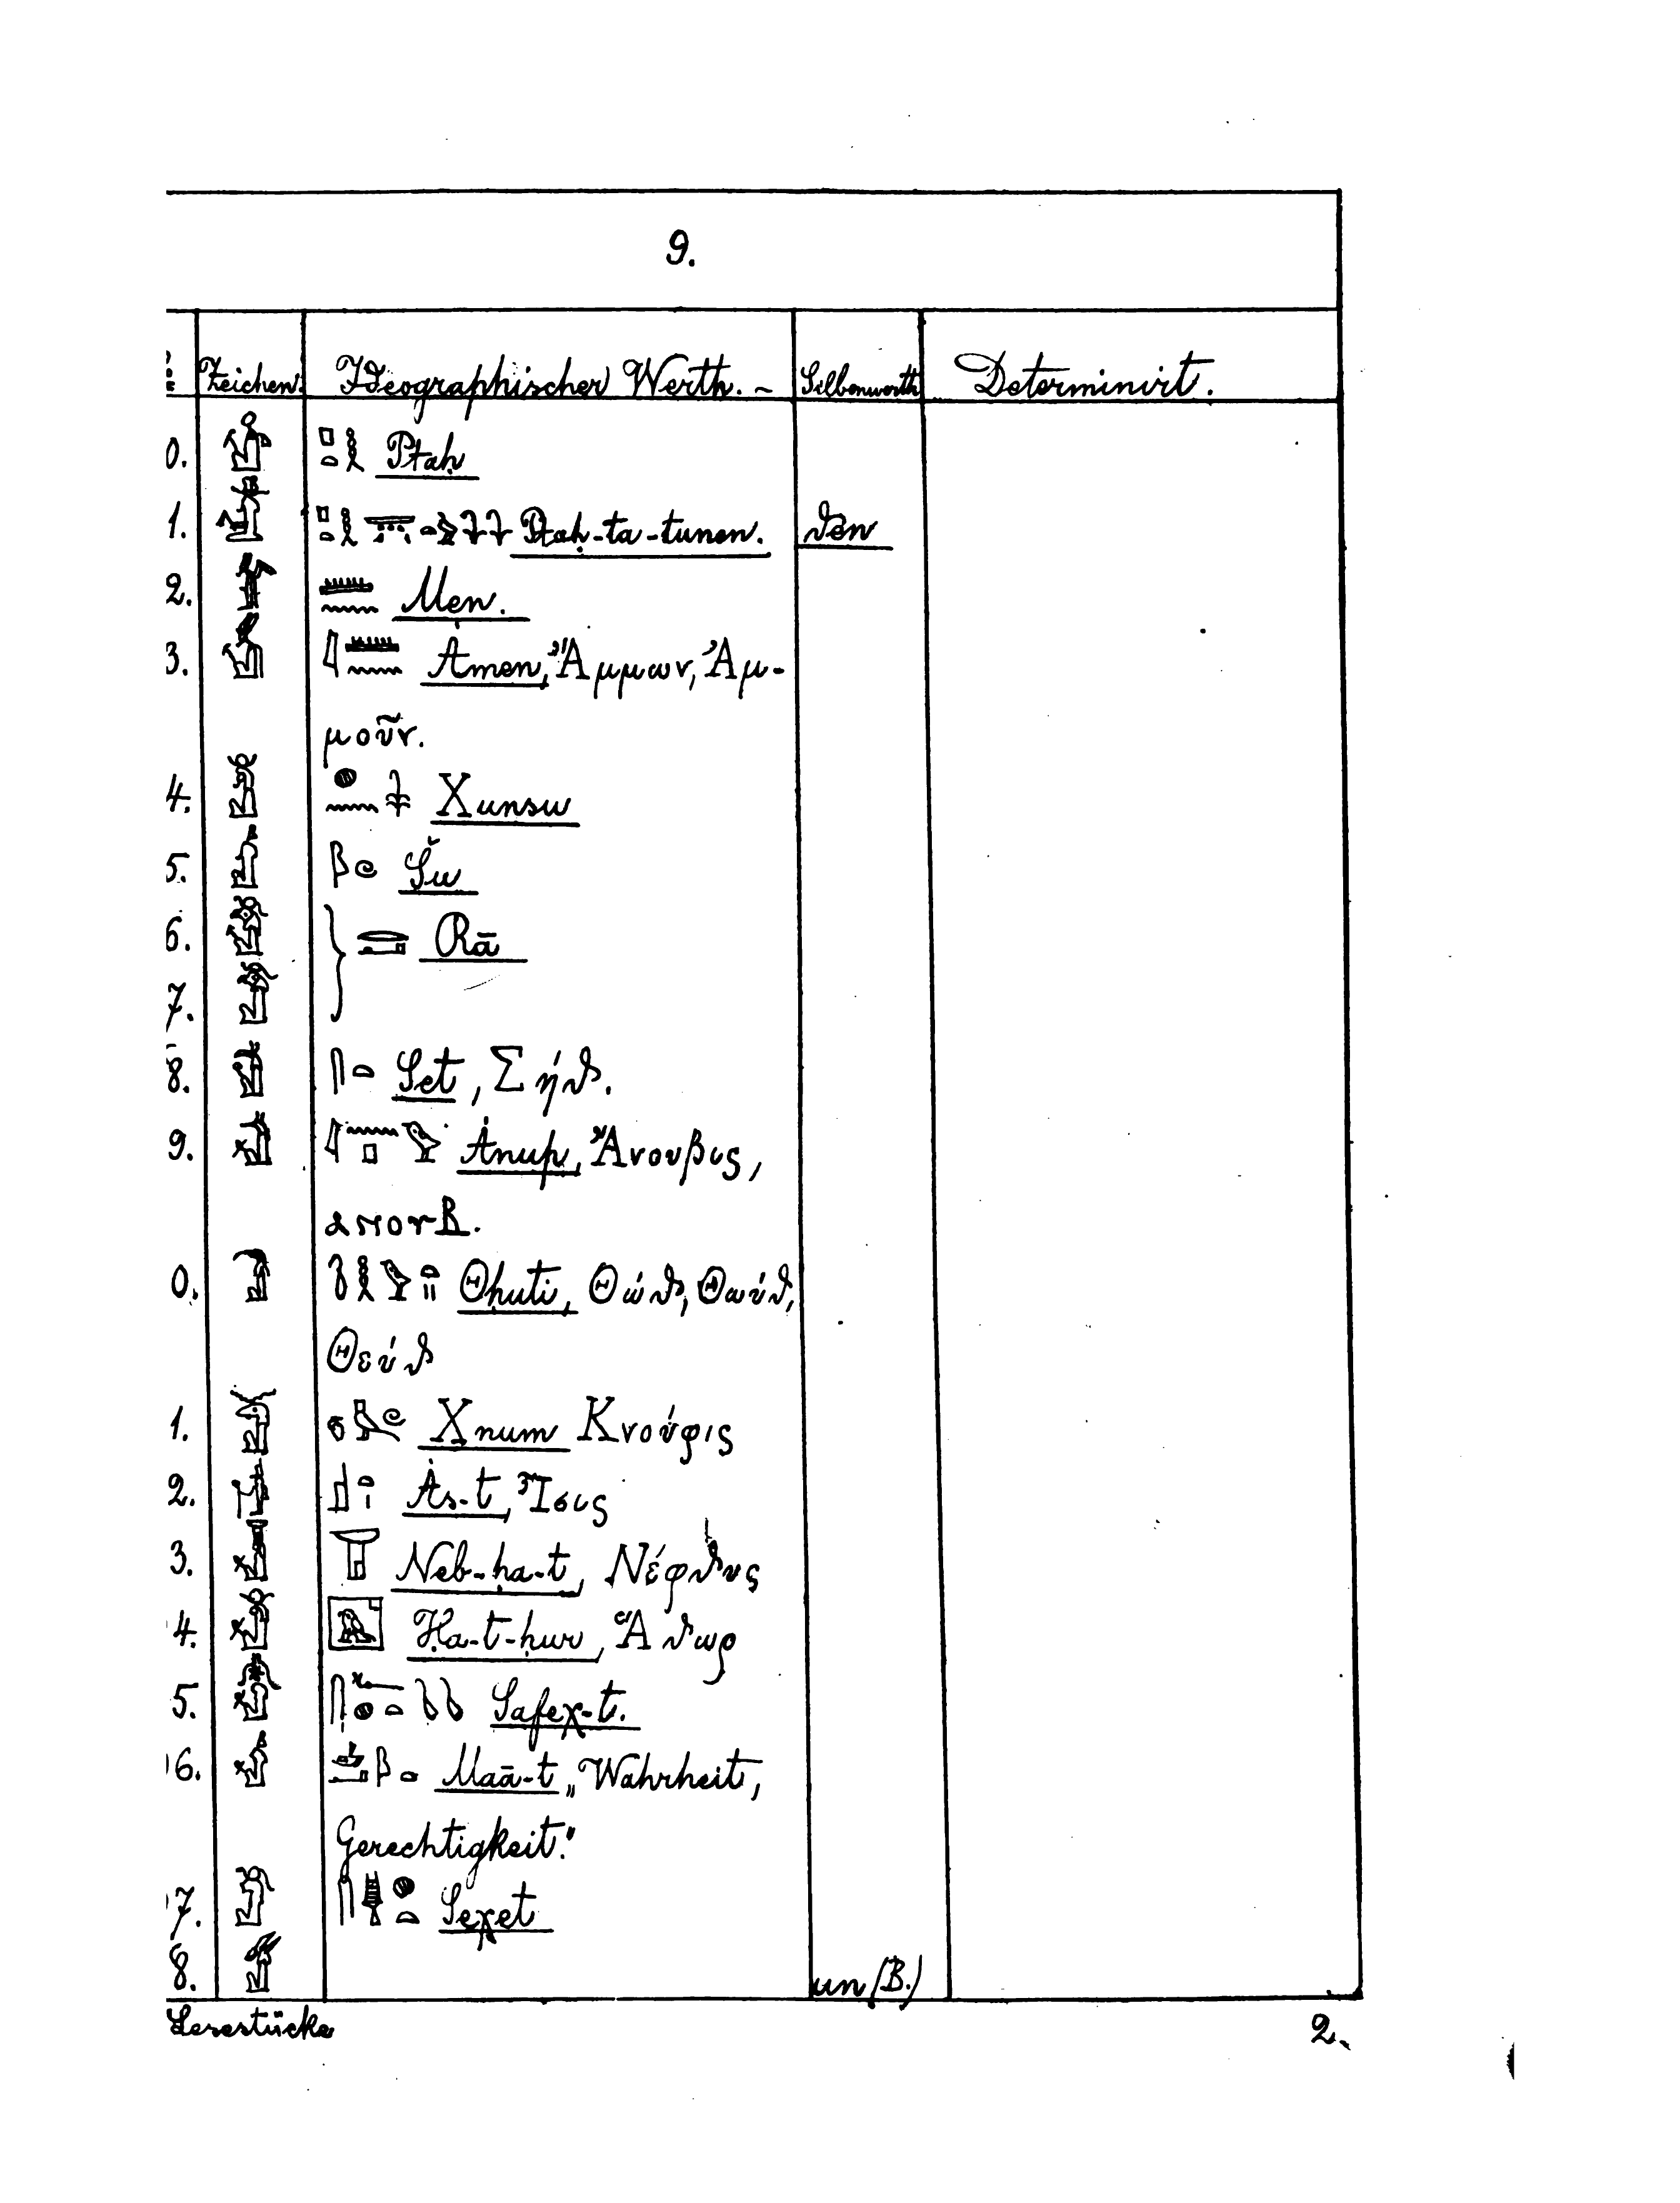 9.
Zeichen. Ideographischer Werth. - Silbenwerth Determinirt.
0. Ptaḥ
1. Ptaḥ-ta-tunen. ϑen
2. Men.
3. Ȧmen, Ἄμμων, Ἀμ-
μοῦν.
4. Χunsu
5. Šu
6. Rā
7.
8. Set, Σήϑ.
9. Ȧnup, Ἄνουβις,
ⲁⲛⲟⲩⲃ.
0. Θḥuti, Θώϑ, Θωύϑ,
Θεύϑ
1. Χnum Κνούφις
2. Ȧs-t, Ἶσις
3. Neb-ḥa-t, Νέφϑυς
4. Ḥa-t-ḥur, Ἅϑωρ
5. Safeχ-t.
6. Maā-t „Wahrheit,
Gerechtigkeit."
7. Seχet
8. un (B.)
Lesestücke 2.